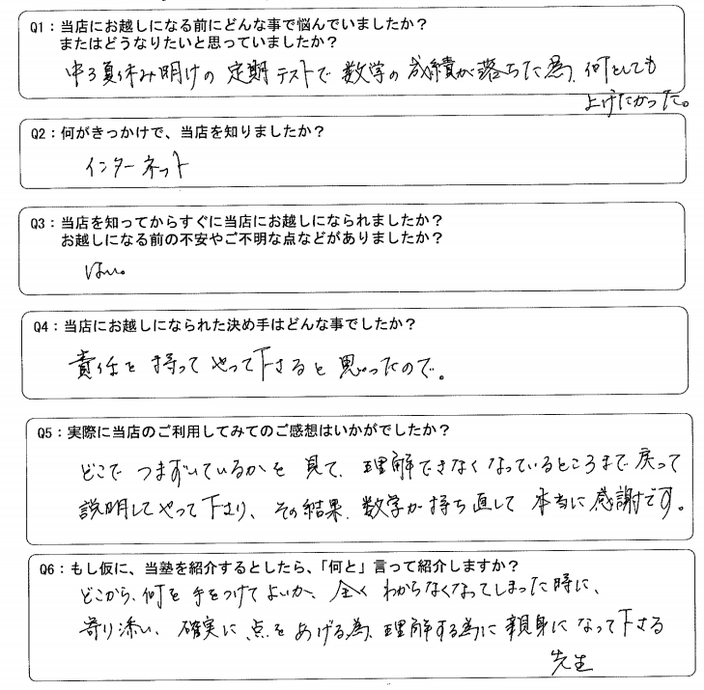 Q1：当店にお越しになる前にどんな事で悩んでいましたか？
またはどうなりたいと思っていましたか？
中3夏休み明けの定期テストで数学の成績が落ちた為、何としても
上げたかった。
Q2：何がきっかけで、当店を知りましたか？
インターネット
Q3：当店を知ってからすぐに当店にお越しになられましたか？
お越しになる前の不安やご不明な点などがありましたか？
はい。
Q4：当店にお越しになられた決め手はどんな事でしたか？
責任を持ってやって下さると思ったので。
Q5：実際に当店のご利用してみてのご感想はいかがでしたか？
どこでつまずいているかを見て、理解できなくなっているところまで戻って
説明してやって下さり、その結果、数学が持ち直して本当に感謝です。
Q6：もし仮に、当塾を紹介するとしたら、「何と」言って紹介しますか？
どこから、何を手をつけてよいか、全くわからなくなってしまった時に、
寄り添い、確実に点をあげる為、理解する為に親身になって下さる
先生